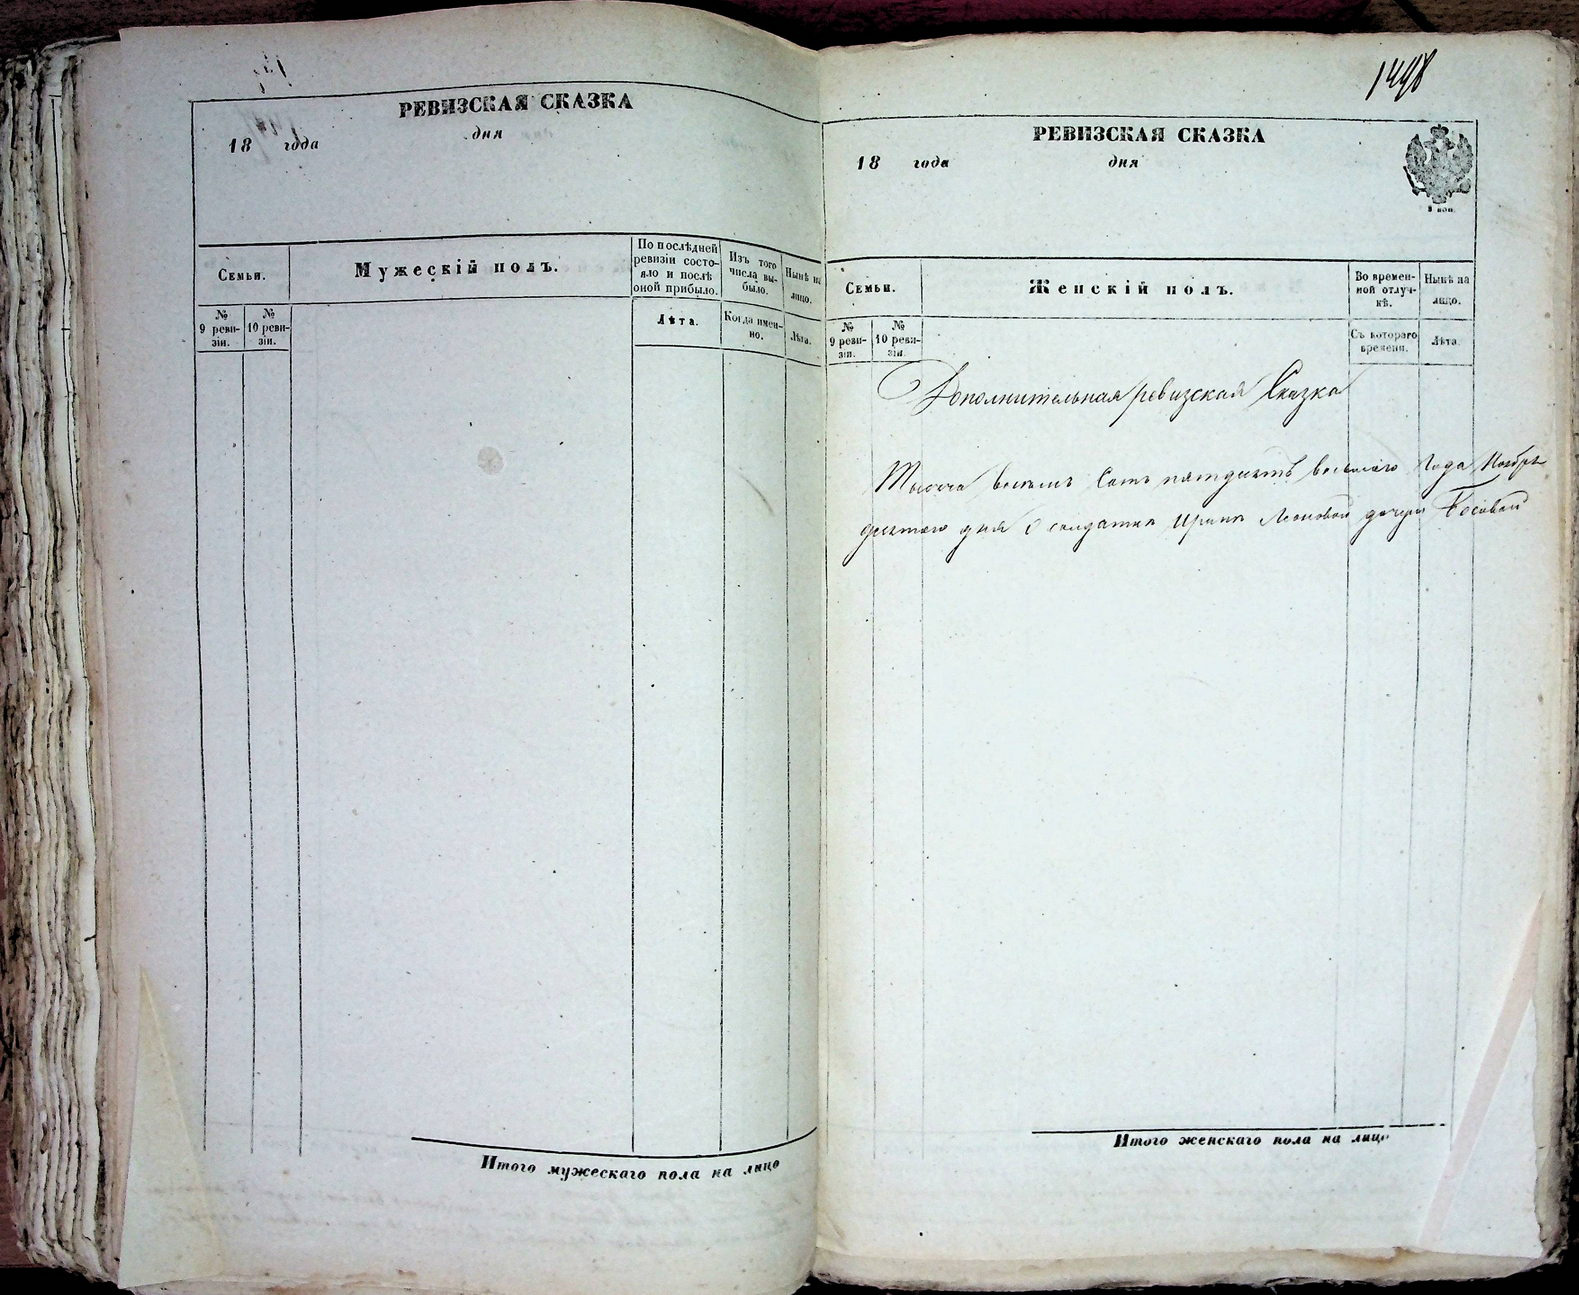 РЕВИЗСКАЯ СКАЗКА
18 года дня
Семьи.
Мужескій полъ.
По послѣдней ревизіи состояло и послѣ оной прибыло.
Изъ того числа выбыло.
Нынѣ на лицо.
№ 9 ревизіи.
№ 10 ревизіи.
Лѣта.
Когда именно.
Лѣта.
Итого мужескаго пола на лицо
1448
РЕВИЗСКАЯ СКАЗКА
18 года дня
Семьи.
Женскій полъ.
Во временной отлучкѣ.
Нынѣ на лицо.
№ 9 ревизіи.
№ 10 ревизіи.
Съ котораго времени.
Лѣта.
Дополнительная ревизская Сказка
Тысяча восемь Сотъ пятдесятъ восьмаго Года Ноября
десятого дня о солдатки Ирины Леоновой дочери Босовой
Итого женскаго пола на лицо